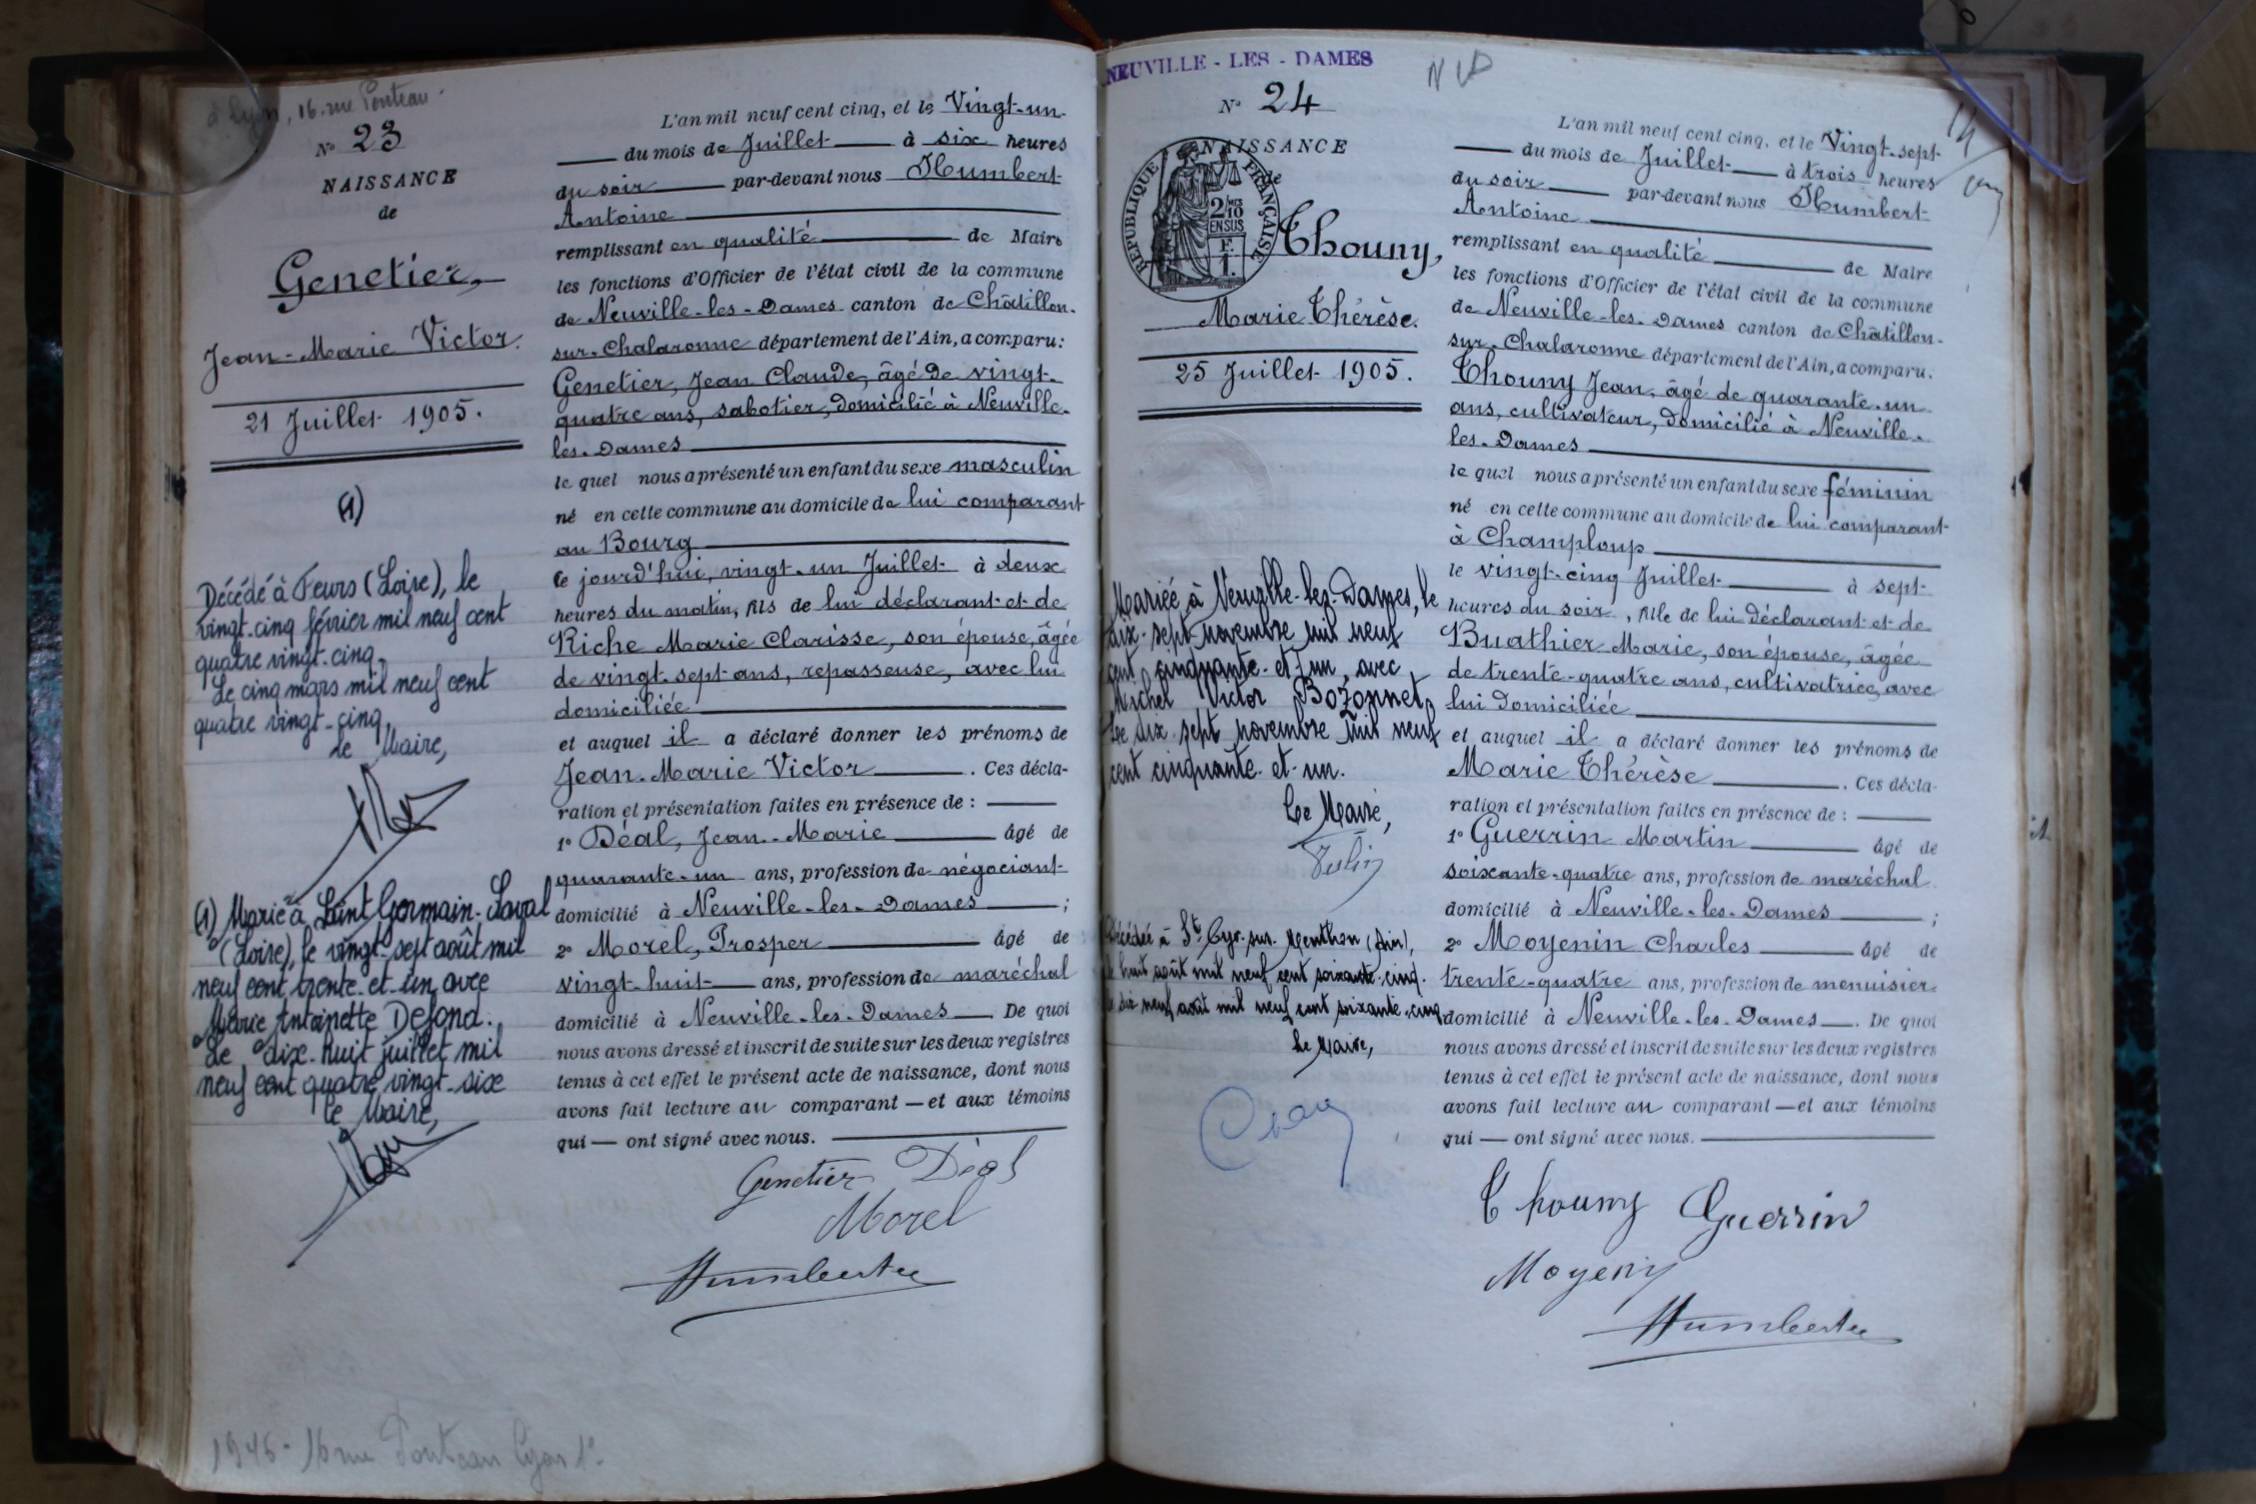 à Lyon, 16, rue Pouteau.
N° 23
NAISSANCE
de
Genetier,
Jean-Marie Victor.
21 Juillet 1905.
(1)
Décédé à Feurs (Loire), le
vingt-cinq février mil neuf cent
quatre vingt-cinq.
Le cinq mars mil neuf cent
quatre vingt-cinq.
Le Maire,
(1) Marié à Saint Germain-Laval
(Loire), le vingt-sept août mil
neuf cent trente-et-un avec
Marie Antoinette Defond.
Le dix-huit juillet mil
neuf cent quatre vingt-six
le Maire,
L'an mil neuf cent cinq, et le Vingt-un
du mois de Juillet à six heures
du soir par-devant nous Humbert
Antoine
remplissant en qualité de Maire
les fonctions d'Officier de l'état civil de la commune
de Neuville-les-Dames canton de Châtillon-
sur-Chalaronne département de l'Ain, a comparu:
Genetier, Jean Claude, âgé de vingt-
quatre ans, sabotier, domicilié à Neuville-
les-Dames
le quel nous a présenté un enfant du sexe masculin
né en cette commune au domicile de lui comparant
au Bourg
ce jourd'hui, vingt-un Juillet à deux
heures du matin, fils de lui déclarant et de
Riche Marie Clarisse, son épouse, âgée
de vingt-sept ans, repasseuse, avec lui
domiciliée
et auquel il a déclaré donner les prénoms de
Jean-Marie Victor. Ces décla-
ration et présentation faites en présence de :
1° Déal, Jean-Marie âgé de
quarante-un ans, profession de négociant
domicilié à Neuville-les-Dames ;
2° Morel, Prosper âgé de
vingt-huit ans, profession de maréchal
domicilié à Neuville-les-Dames. De quoi
nous avons dressé et inscrit de suite sur les deux registres
tenus à cet effet le présent acte de naissance, dont nous
avons fait lecture au comparant — et aux témoins
qui — ont signé avec nous.
Genetier Déal
Morel
Humbert
1945 - 16 rue Pouteau Lyon 1°
NEUVILLE - LES - DAMES
NLD
14
N° 24
NAISSANCE
de
RÉPUBLIQUE FRANÇAISE
2/10
EN SUS
F.
1.
Thouny,
Marie Thérèse.
25 Juillet 1905.
Mariée à Neuville-les-Dames, le
dix-sept novembre mil neuf
cent cinquante-et-un, avec
Michel Victor Bozonnet.
Le dix-sept novembre mil neuf
cent cinquante-et-un.
Le Maire,
Décédée à St Cyr-sur-Menthon (Ain),
le huit août mil neuf cent soixante-cinq.
Le dix neuf août mil neuf cent soixante-cinq
Le Maire,
L'an mil neuf cent cinq, et le Vingt-sept
du mois de Juillet à trois heures
du soir par-devant nous Humbert
Antoine
remplissant en qualité de Maire
les fonctions d'Officier de l'état civil de la commune
de Neuville-les-Dames canton de Châtillon-
sur-Chalaronne département de l'Ain, a comparu:
Thouny Jean, âgé de quarante-un
ans, cultivateur, domicilié à Neuville-
les-Dames
le quel nous a présenté un enfant du sexe féminin
né en cette commune au domicile de lui comparant
à Champloup
le vingt-cinq Juillet à sept
heures du soir, fille de lui déclarant et de
Buathier Marie, son épouse, âgée
de trente-quatre ans, cultivatrice, avec
lui domiciliée
et auquel il a déclaré donner les prénoms de
Marie Thérèse. Ces décla-
ration et présentation faites en présence de :
1° Guerrin Martin âgé de
soixante-quatre ans, profession de maréchal
domicilié à Neuville-les-Dames ;
2° Moyenin Charles âgé de
trente-quatre ans, profession de menuisier
domicilié à Neuville-les-Dames. De quoi
nous avons dressé et inscrit de suite sur les deux registres
tenus à cet effet le présent acte de naissance, dont nous
avons fait lecture au comparant — et aux témoins
qui — ont signé avec nous.
Thouny Guerrin
Moyenin
Humbert